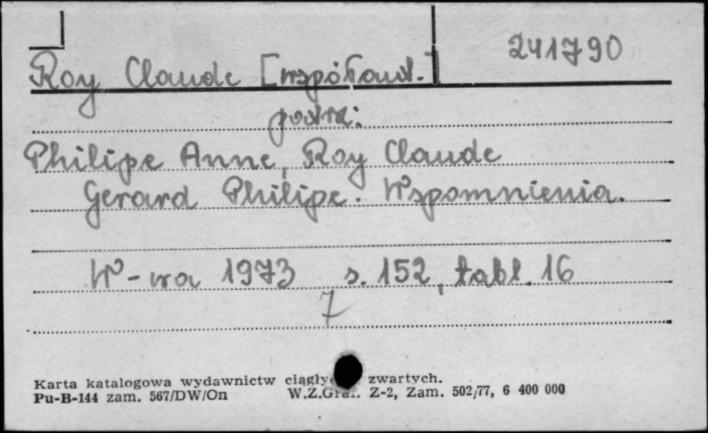 241790
Roy Claude [współaut.]
patrz:
Philipe Anne, Roy Claude
Gerard Philipe. Wspomnienia.
W-wa 1973 s. 152, tabl. 16
7
Karta katalogowa wydawnictw zwartych.
Pu-B-144 zam. 567/DW/On W.Z.Graf. Z-2, Zam. 502/77, 6 400 000